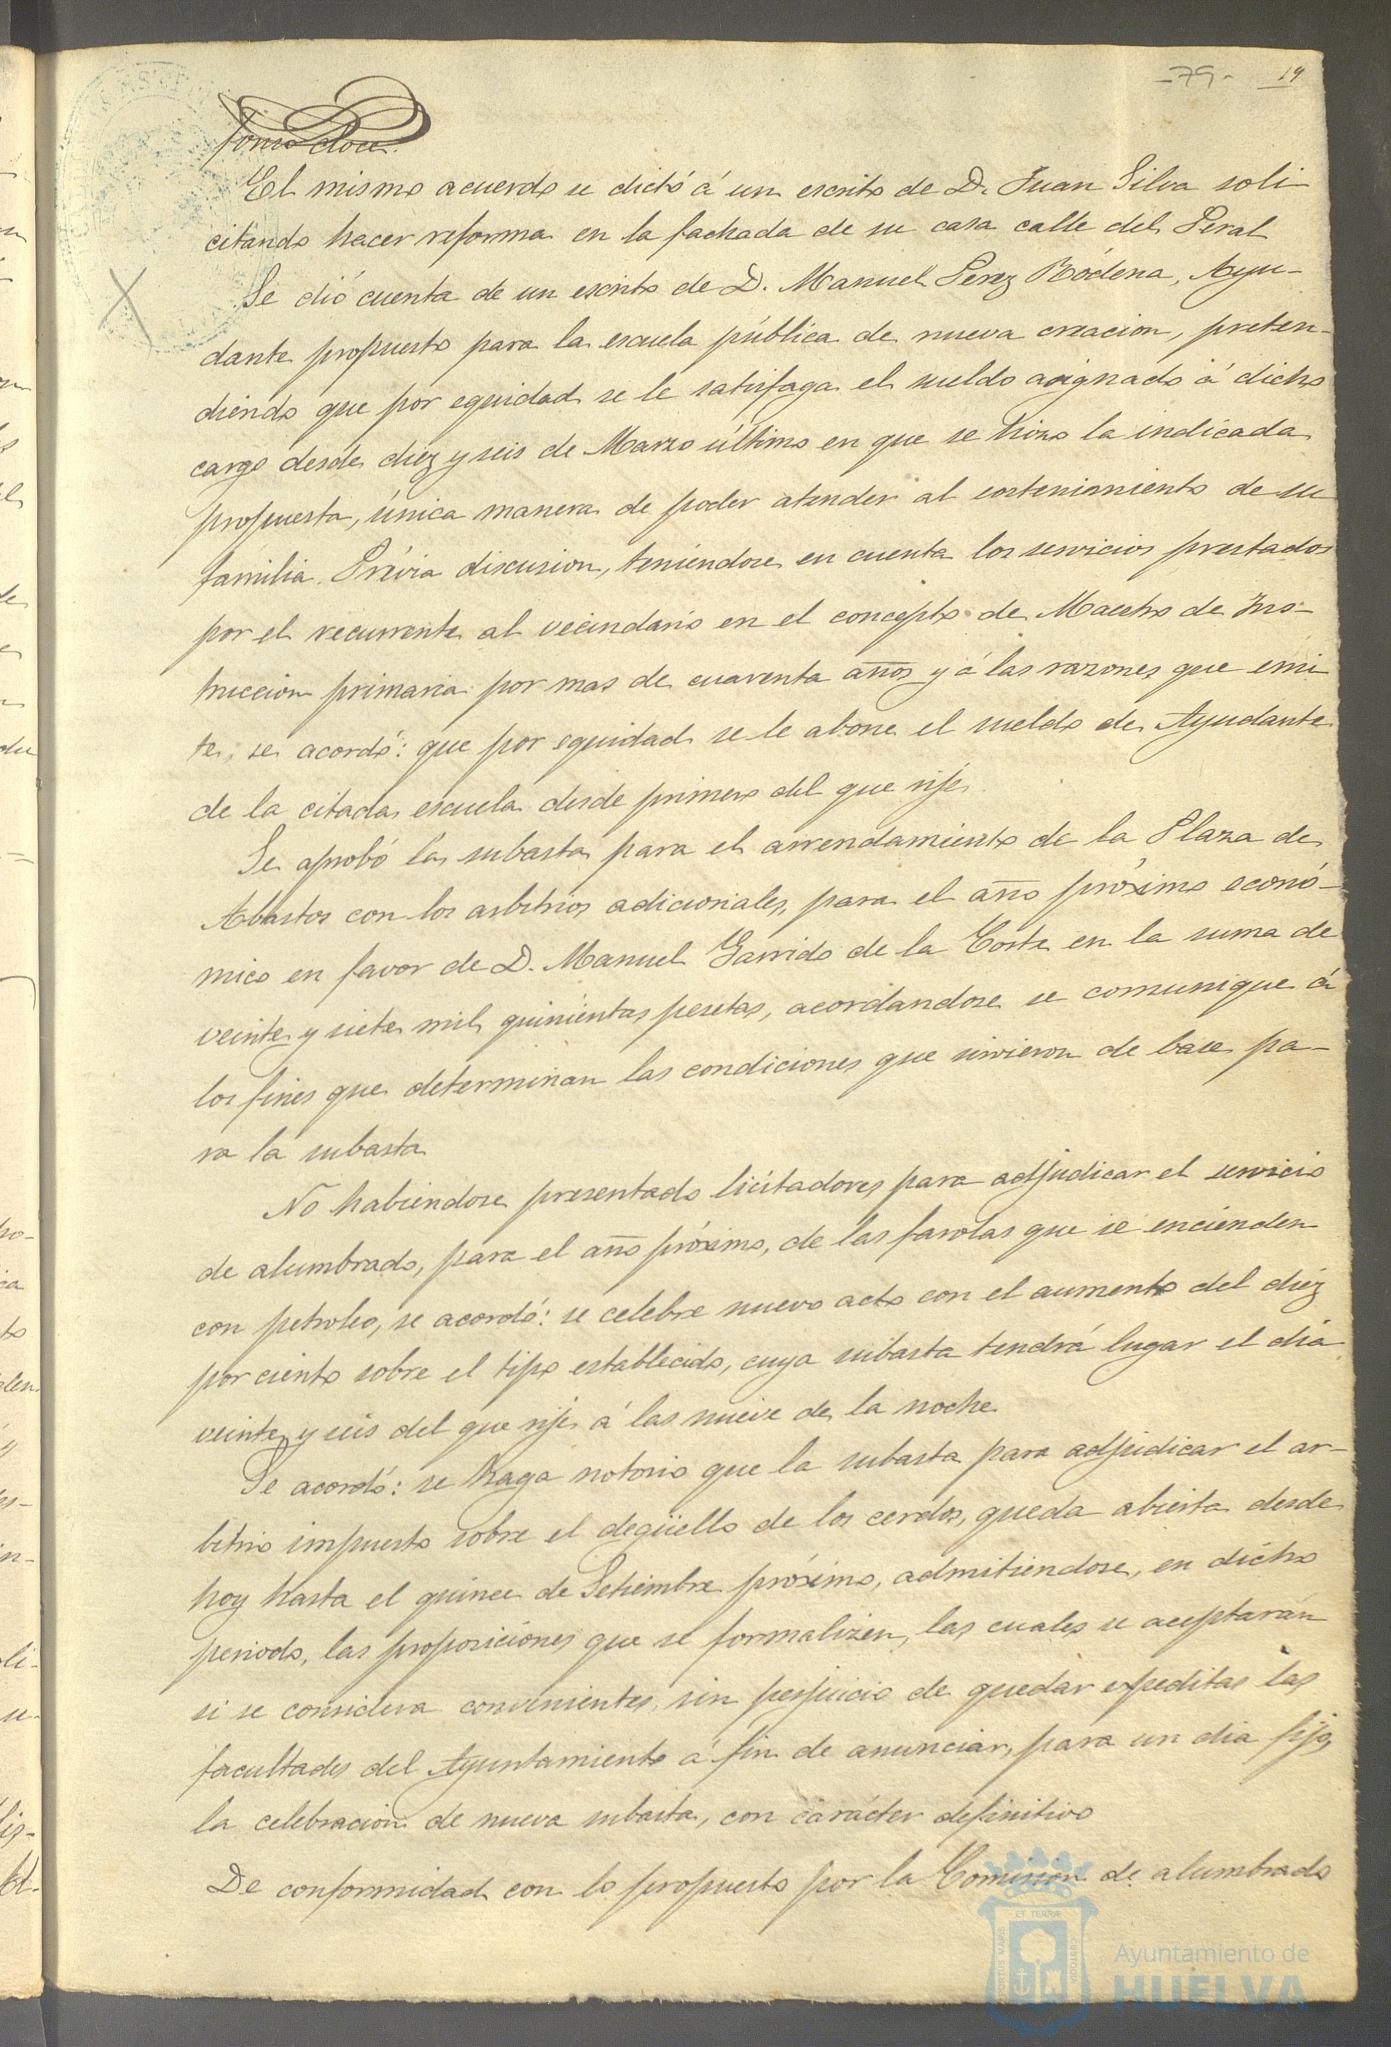 -79- 19
doce.
El mismo acuerdo se dictó á un escrito de D. Juan Silva soli-
citando hacer reforma en la fachada de su casa calle del Peral
Se dió cuenta de un escrito de D. Manuel Perez Ródena, Ayu-
dante propuesto para la escuela pública de nueva creacion, preten-
diendo que por equidad se le satisfaga el sueldo asignado á dicho
cargo desde diez y seis de Marzo último en que se hizo la indicada
propuesta, única manera de poder atender al sostenimiento de su
familia. Prévia discusion, teniendose en cuenta los servicios prestados
por el recurrente al vecindario en el concepto de Maestro de Ins-
truccion primaria por mas de cuarenta años y á las razones que emi-
te, se acordó: que por equidad se le abone el sueldo de Ayudante
de la citada escuela desde primero del que rije.
Se aprobó la subasta para el arrendamiento de la Plaza de
Abastos con los arbitrios adicionales, para el año próximo econó-
mico en favor de D. Manuel Garrido de la Corte en la suma de
veinte y siete mil quinientas pesetas, acordandose se comunique á
los fines que determinan las condiciones que sirvieron de base pa-
ra la subasta
No habiendose presentado licitadores para adjudicar el servicio
de alumbrado, para el año próximo, de las farolas que se encienden
con petroleo, se acordó: se celebre nuevo acto con el aumento del diez
por ciento sobre el tipo establecido, cuya subasta tendrá lugar el dia
veinte y seis del que rije á las nueve de la noche
Se acordó: se haga notorio que la subasta para adjudicar el ar-
bitrio impuesto sobre el degüello de los cerdos, queda abierta desde
hoy hasta el quince de Setiembre próximo, admitiendose, en dicho
periodo, las proposiciones que se formalizen, las cuales se aceptarán
si se considera convenientes, sin perjuicio de quedar expeditas las
facultades del Ayuntamiento á fin de anunciar, para un dia fijo,
la celebracion de nueva subasta, con carácter definitivo
De conformidad con lo propuesto por la Comision de alumbrado
Ayuntamiento de
HUELVA